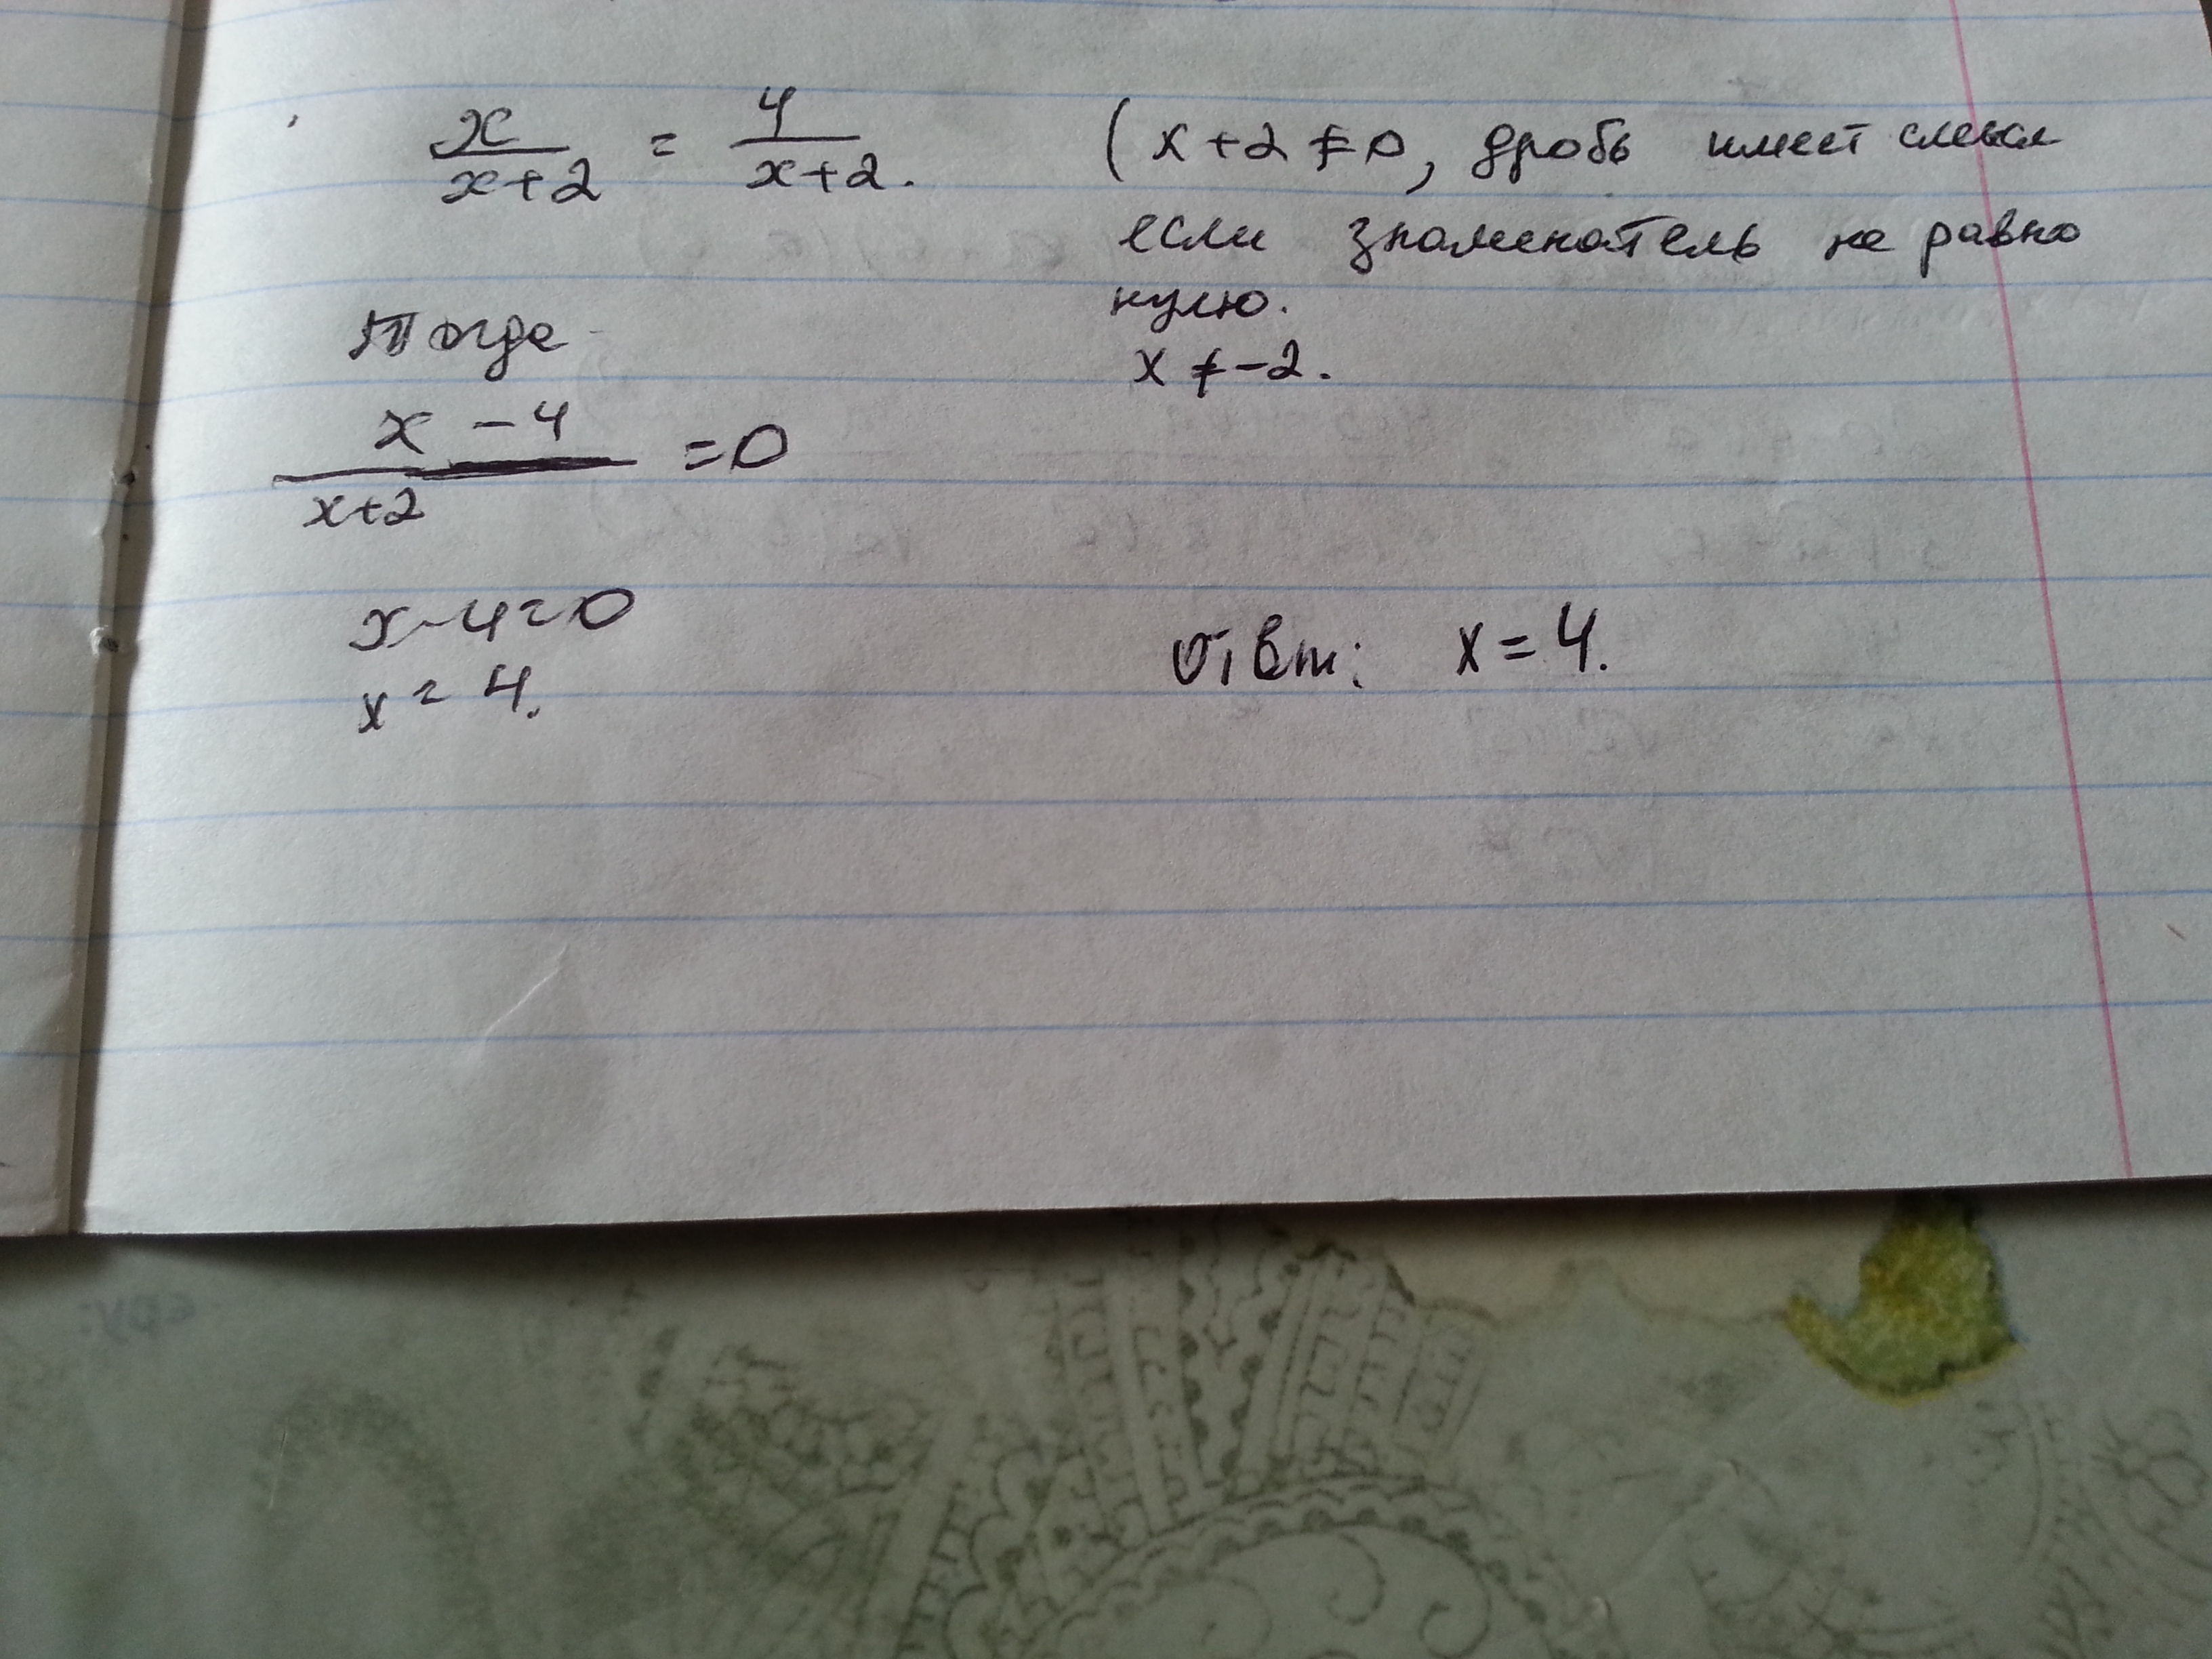 x/(x+2) = 4/(x+2).
(x+2≠0, дробь имеет смысл
если знаменатель не равно
нулю.
x≠-2.
Тогда
(x-4)/(x+2) =0
x-4=0
x=4.
Ответ: x=4.